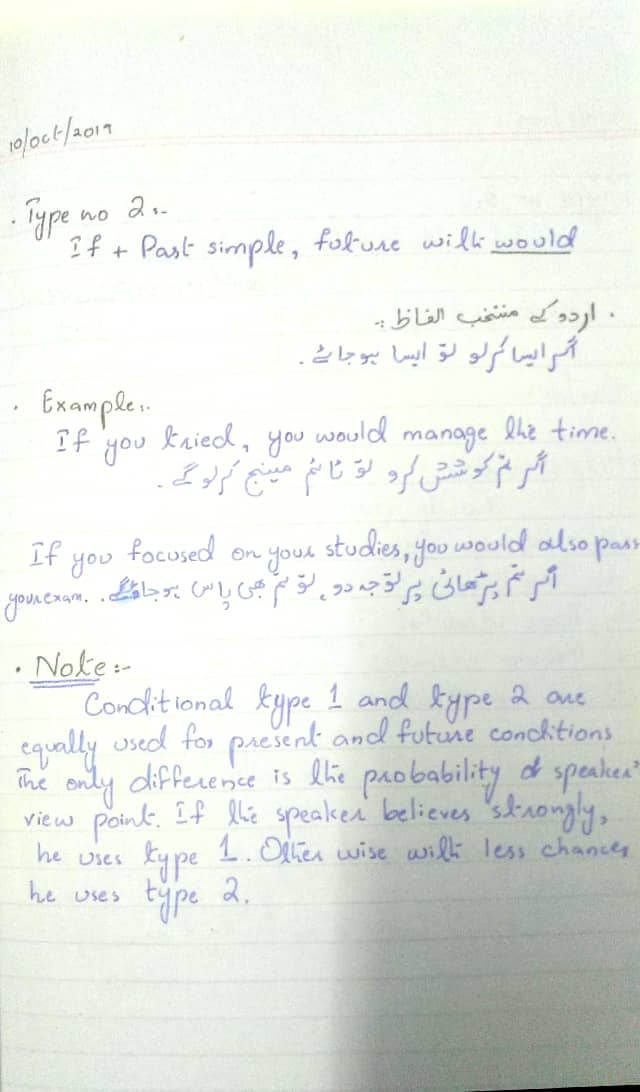 10/Oct/2019
. Type no 2:-
If + Past simple, future with would
. اردو کے منتخب الفاظ :-
اگر ایسا کرلو تو ایسا ہوجائے .
. Example:-
If you tried, you would manage the time.
اگر تم کوشش کرو تو ٹائم مینج کرلو گے .
If you focused on your studies, you would also pass
your exam. اگر تم پڑھائی پر توجہ دو، تو تم بھی پاس ہو جاؤ گے .
. Note :-
Conditional type 1 and type 2 are
equally used for present and future conditions
The only difference is the probability of speaker's
view point. If the speaker believes strongly,
he uses type 1. Other wise with less chances
he uses type 2.